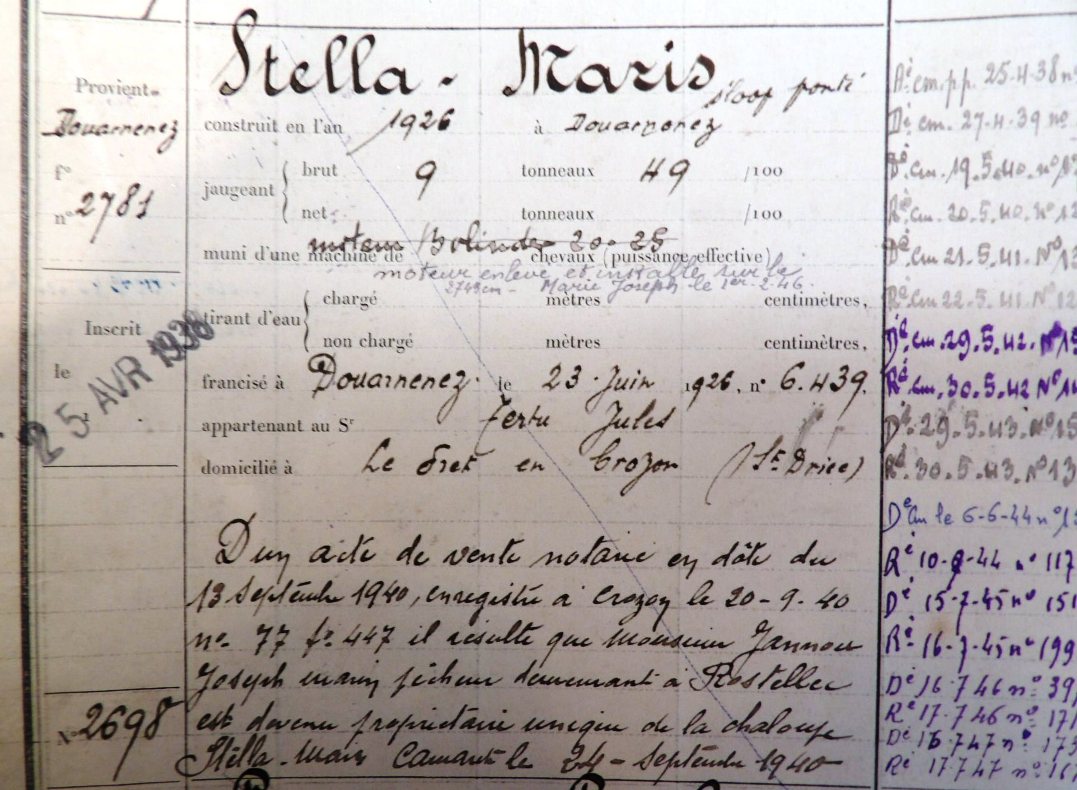 Provient
Douarnenez
f°
n° 2781
Inscrit
le
25 AVR 1938
N° 2698
Stella - Maris
sloop ponté
construit en l'an 1926 à Douarnenez
jaugeant { brut 9 tonneaux 49 /100
net tonneaux /100
muni d'une machine de moteur Bolinder 20-25 chevaux (puissance effective)
moteur enlevé et installé sur le
2743 cm - Marie Joseph le 1er-2-46
tirant d'eau { chargé mètres centimètres,
non chargé mètres centimètres,
francisé à Douarnenez le 23 Juin 1926, n° 6.439
appartenant au Sr Fertu Jules
domicilié à Le Fret en Crozon (St Driec)
D'un acte de vente notarié en dâte du
13 Septembre 1940, enregistré à Crozon le 20-9-40
n° 77 f° 447 il résulte que Monsieur Jannou
Joseph marin pêcheur demeurant à Rostellec
est devenu propriétaire unique de la chaloupe
Stella-Maris Camaret le 24 - Septembre 1940
Ré cm. pp. 25-4-38 n°
Dé cm. 27-4-39 n°
Dé cm. 19.5.40. n°
Ré cm. 20.5.40. N° 12
Dé cm 21.5.41. N° 13
Ré cm 22.5.41. N° 12
Dé cm. 29.5.42. N° 15
Ré cm. 30.5.42 N° 14
Dé 29.5.43. N° 15
Ré 30.5.43. N° 13
Dé cm le 6-6-44 n° 13
Ré 10-9-44 n° 117
Dé 15-7-45 n° 151
Ré 16-7-45 n° 199
Dé 16 7 46 n° 39
Ré 17 7 46 n° 17
Dé 16 7 47 n° 173
Ré 17 7 47 n° 167